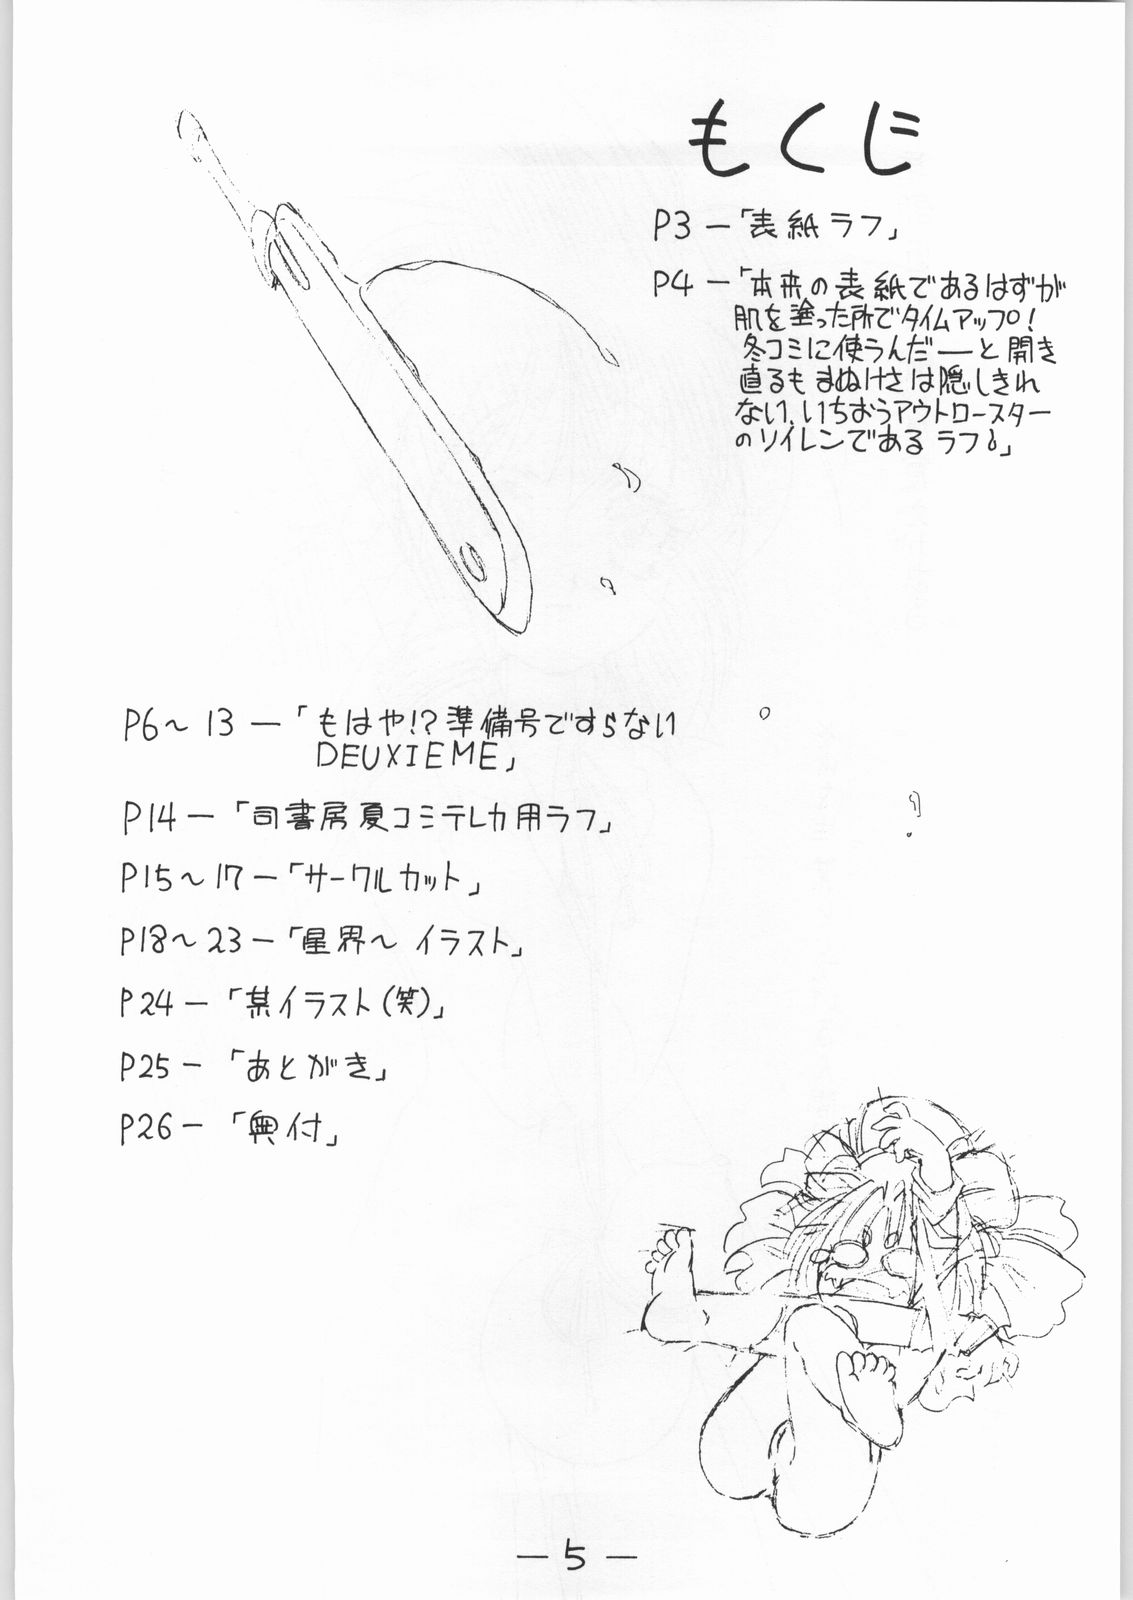 もくじ
P3 ー「表紙ラフ」
P4 ー「本来の表紙であるはずが
肌を塗った所でタイムアップ!
冬コミに使うんだーと開き
直るもまぬけさは隠しきれ
ない、いちおうアウトロースター
のソイレンである ラフ。」
P6〜13 ー「もはや!?準備号ですらない
DEUXIEME」
P14ー「司書房夏コミテレカ用ラフ」
P15〜17ー「サークルカット」
P18〜23ー「星界〜 イラスト」
P24ー「某イラスト(笑)」
P25ー「あとがき」
P26ー「奥付」
ー5ー